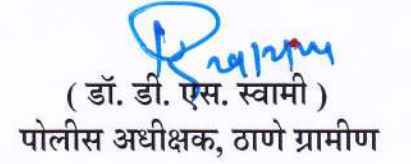 ( डॉ. डी. एस. स्वामी )
पोलीस अधीक्षक, ठाणे ग्रामीण